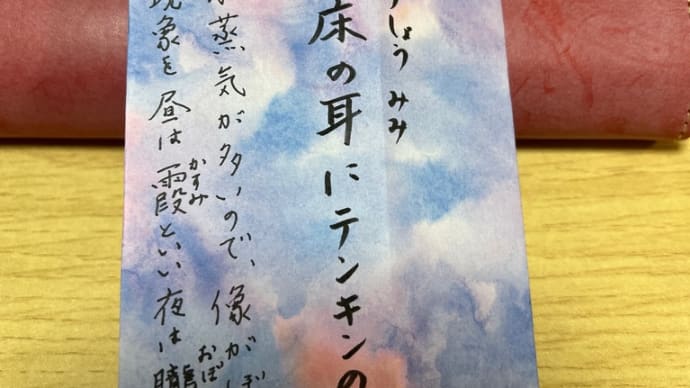 しょう みみ
床の耳にテンキンの
蒸気が多いので、像が
かすみ おぼ
現象を昼は霞といい夜は朧